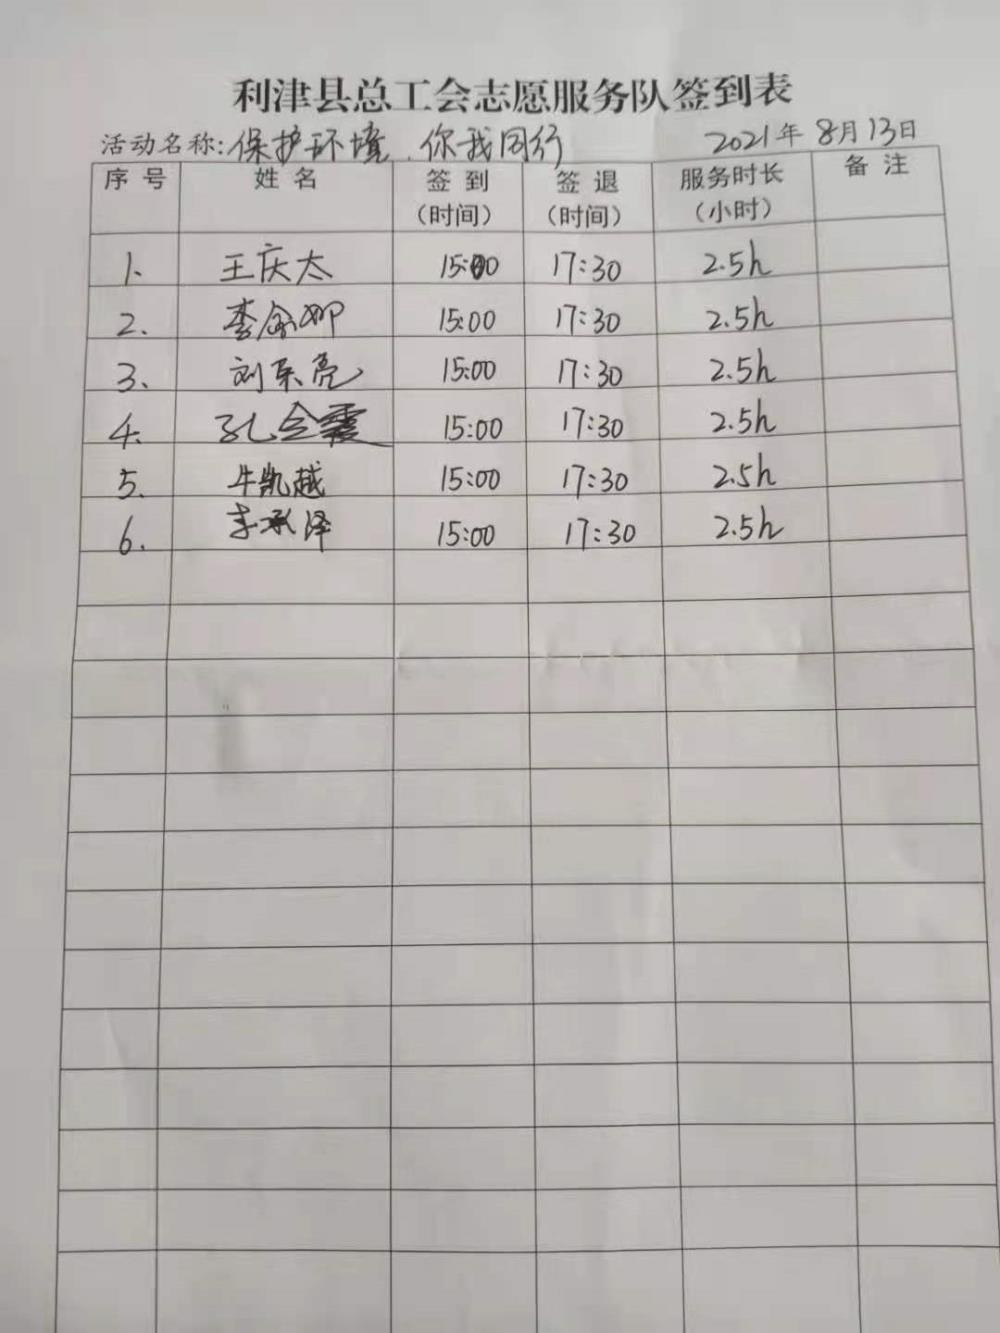 利津县总工会志愿服务队签到表
活动名称:保护环境、你我同行 2021年8月13日
序号 姓名 签到(时间) 签退(时间) 服务时长(小时) 备注
1、 王庆太 15:00 17:30 2.5h
2、 李 娜 15:00 17:30 2.5h
3、 刘东亮 15:00 17:30 2.5h
4、 孔令霞 15:00 17:30 2.5h
5、 牛凯越 15:00 17:30 2.5h
6、 李承泽 15:00 17:30 2.5h